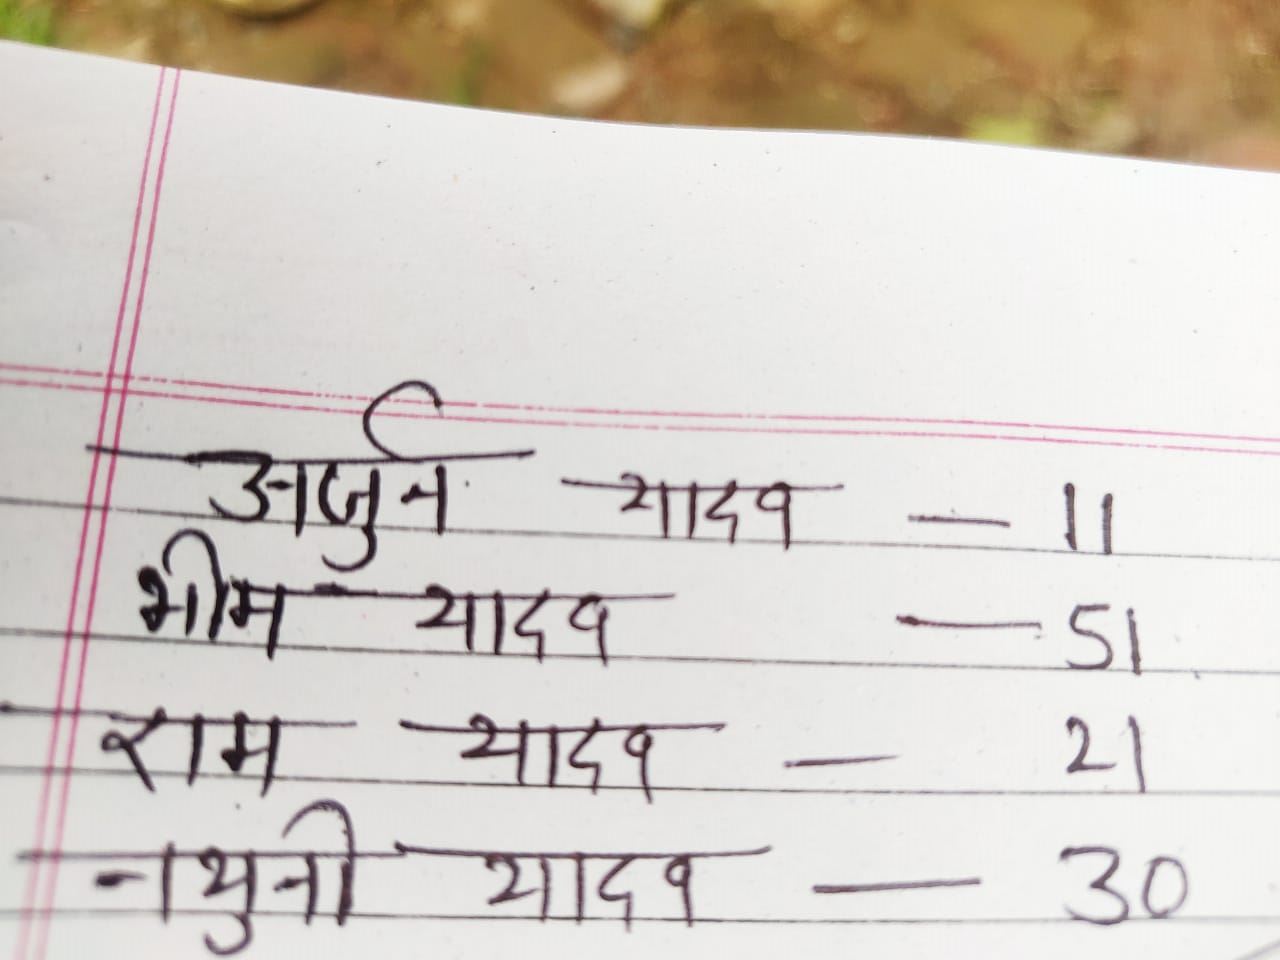 अर्जुन यादव - 11
भीम यादव - 51
राम यादव - 21
यादव - 30